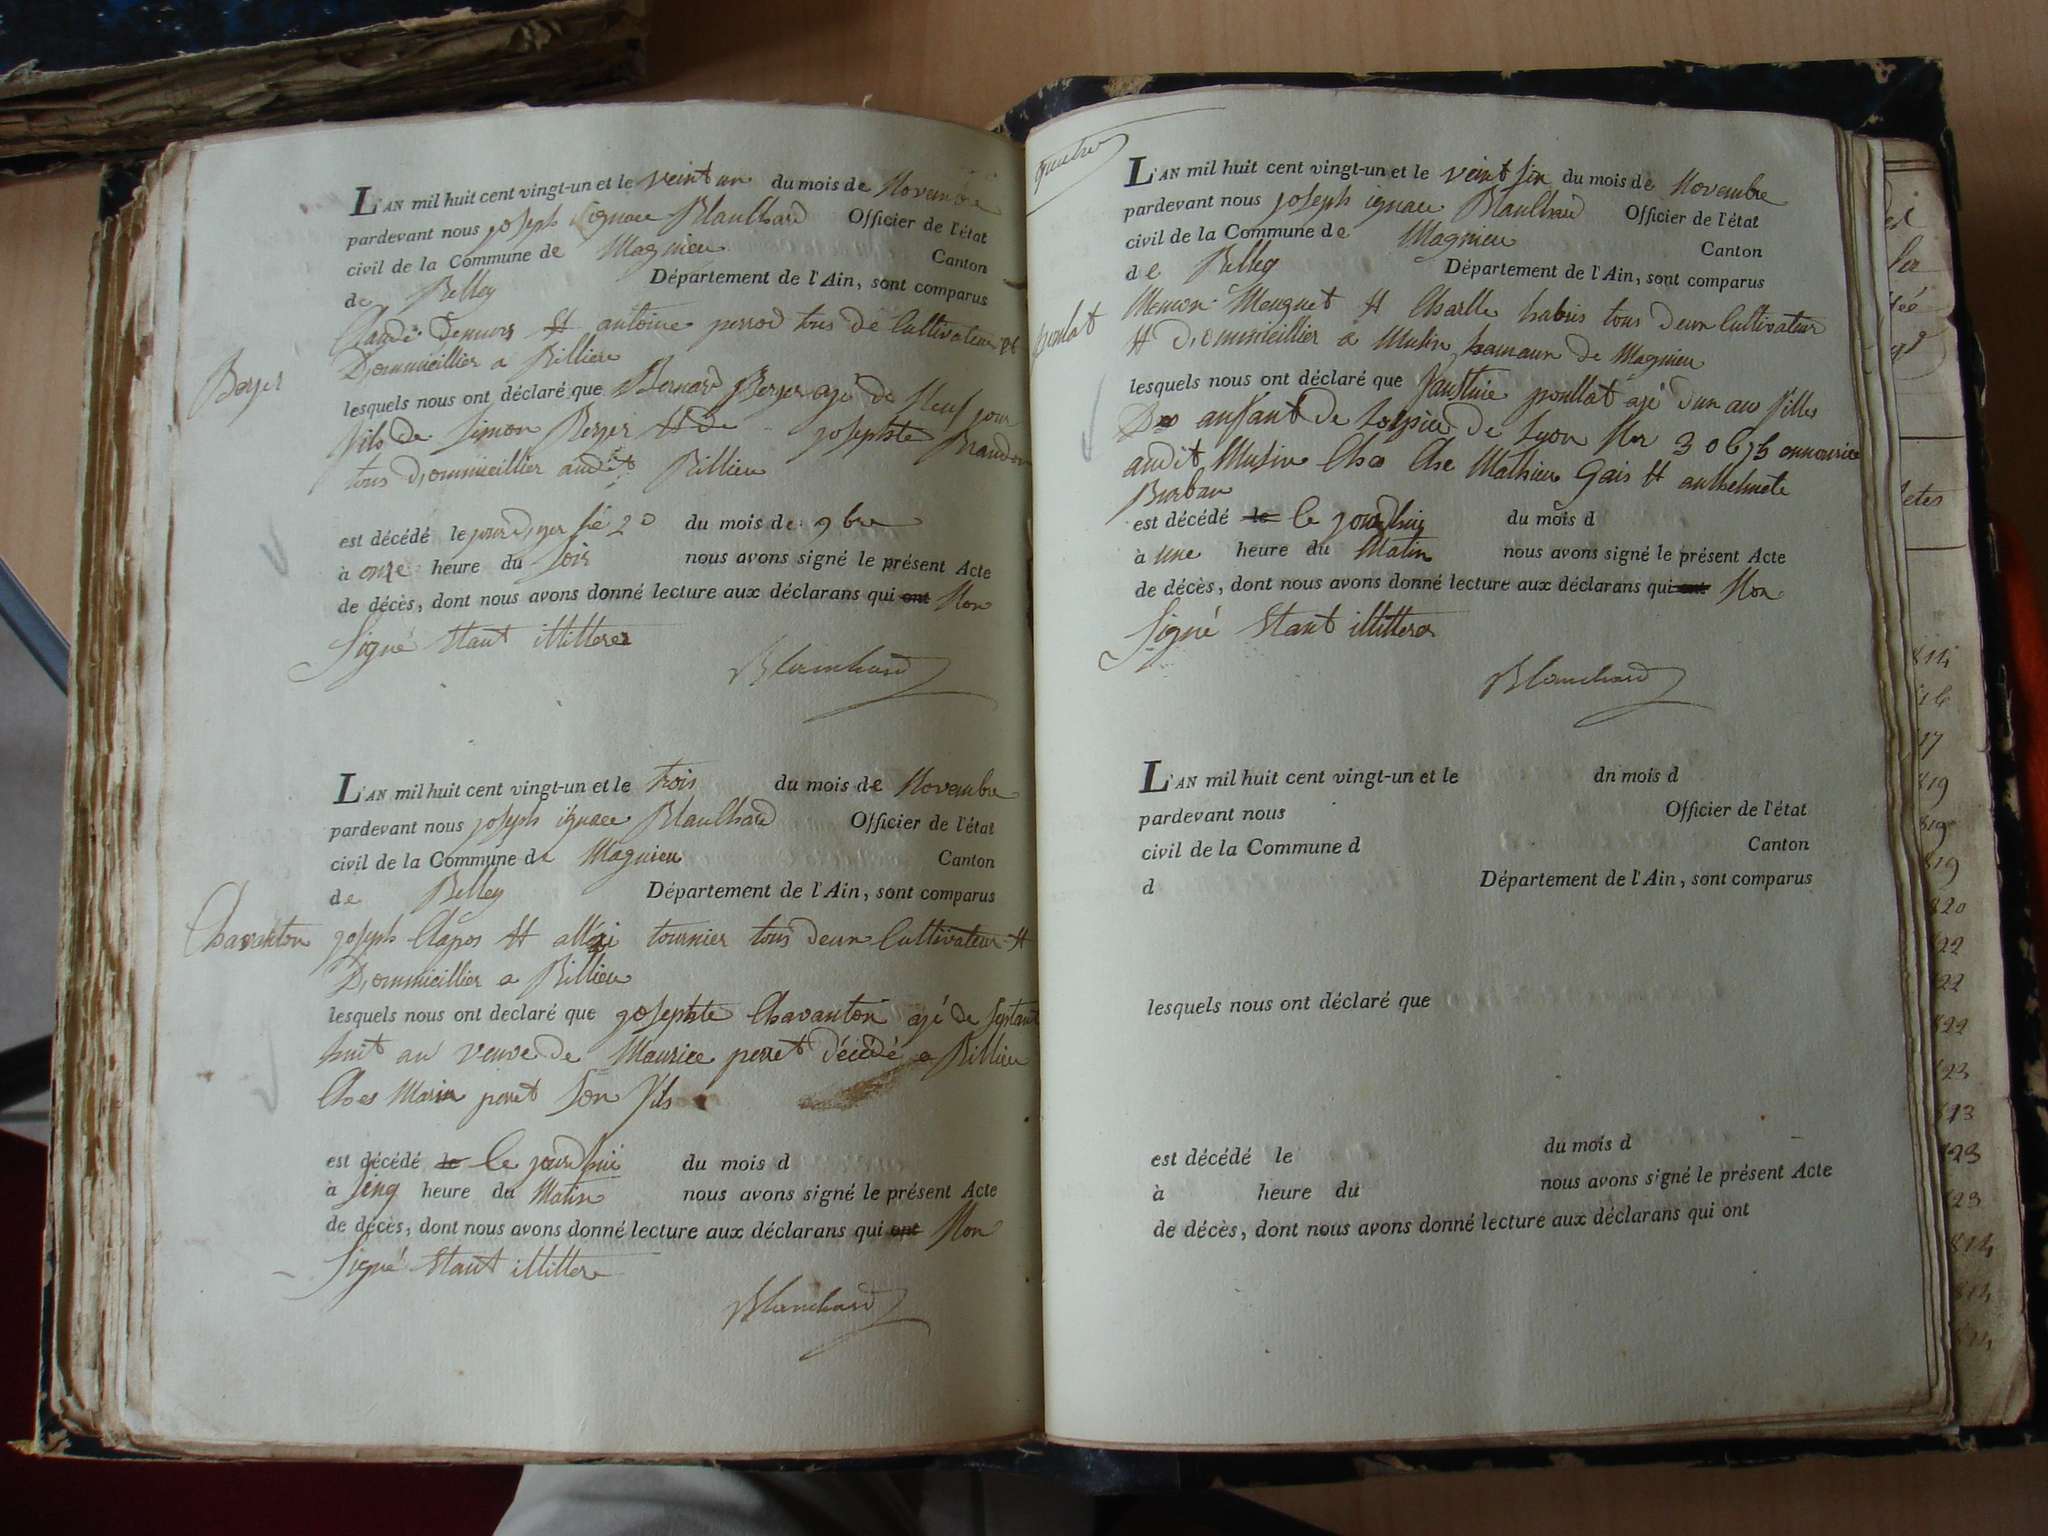 L'AN mil huit cent vingt-un et le veint un du mois de Novembre
pardevant nous joseph ignace Blanchard Officier de l'état
civil de la Commune de Magnieu Canton
de Belley Département de l'Ain, sont comparus
Claude Demurs et antoine perrod tous de Cultivateur et
Dommicillier a Billieu
Berjer
lesquels nous ont déclaré que Bernard Berjer ajé de Neuf jour
fils de Simon Berjer et de josephte
tous Dommicillier audit Billieu
est décédé le jour d'yer le 20 du mois de 9bre
à onze heure du soir nous avons signé le présent Acte
de décès, dont nous avons donné lecture aux déclarans qui ont Non
Signé Etant illittere
Blanchard
L'AN mil huit cent vingt-un et le trois du mois de Novembre
pardevant nous joseph ignace Blanchard Officier de l'état
civil de la Commune de Magnieu Canton
de Belley Département de l'Ain, sont comparus
Chavanton
joseph Clapos et tournier tous deux Cultivateur et
Dommicillier a Billieu
lesquels nous ont declaré que josephte Chavanton ajé de septant
huit an veuve de Maurice peret décédé a Billieu
Ches Marin peret son fils
est décédé le le jourdhui du mois d
à sinq heure du Matin nous avons signé le présent Acte
de décès, dont nous avons donné lecture aux déclarans qui ont Non
Signé Etant illittere
Blanchard
quatre
L'AN mil huit cent vingt-un et le veint six du mois de Novembre
pardevant nous joseph ignace Blanchard Officier de l'état
civil de la Commune de Magnieu Canton
de Belley Département de l'Ain, sont comparus
poulat
Memon Mouguet et Charlle babuis tous deux Cultivateur
et Dommicillier a Musin hamaux de Magnieu
lesquels nous ont déclaré que faustine poullat ajé d'un an fille
anffant de lospice de Lyon Nor 30675 ennourice
audit Musin Ches Mathieu Gais et anthelmete
Burban
est décédé le le jourdhuy du mois d
à une heure du Matin nous avons signé le présent Acte
de décès, dont nous avons donné lecture aux déclarans qui ont Non
Signé Etant illittere
Blanchard
L'AN mil huit cent vingt-un et le dn mois d
pardevant nous Officier de l'état
civil de la Commune d Canton
d Département de l'Ain, sont comparus
lesquels nous ont déclaré que
est décédé le du mois d
à heure du nous avons signé le présent Acte
de décès, dont nous avons donné lecture aux déclarans qui ont